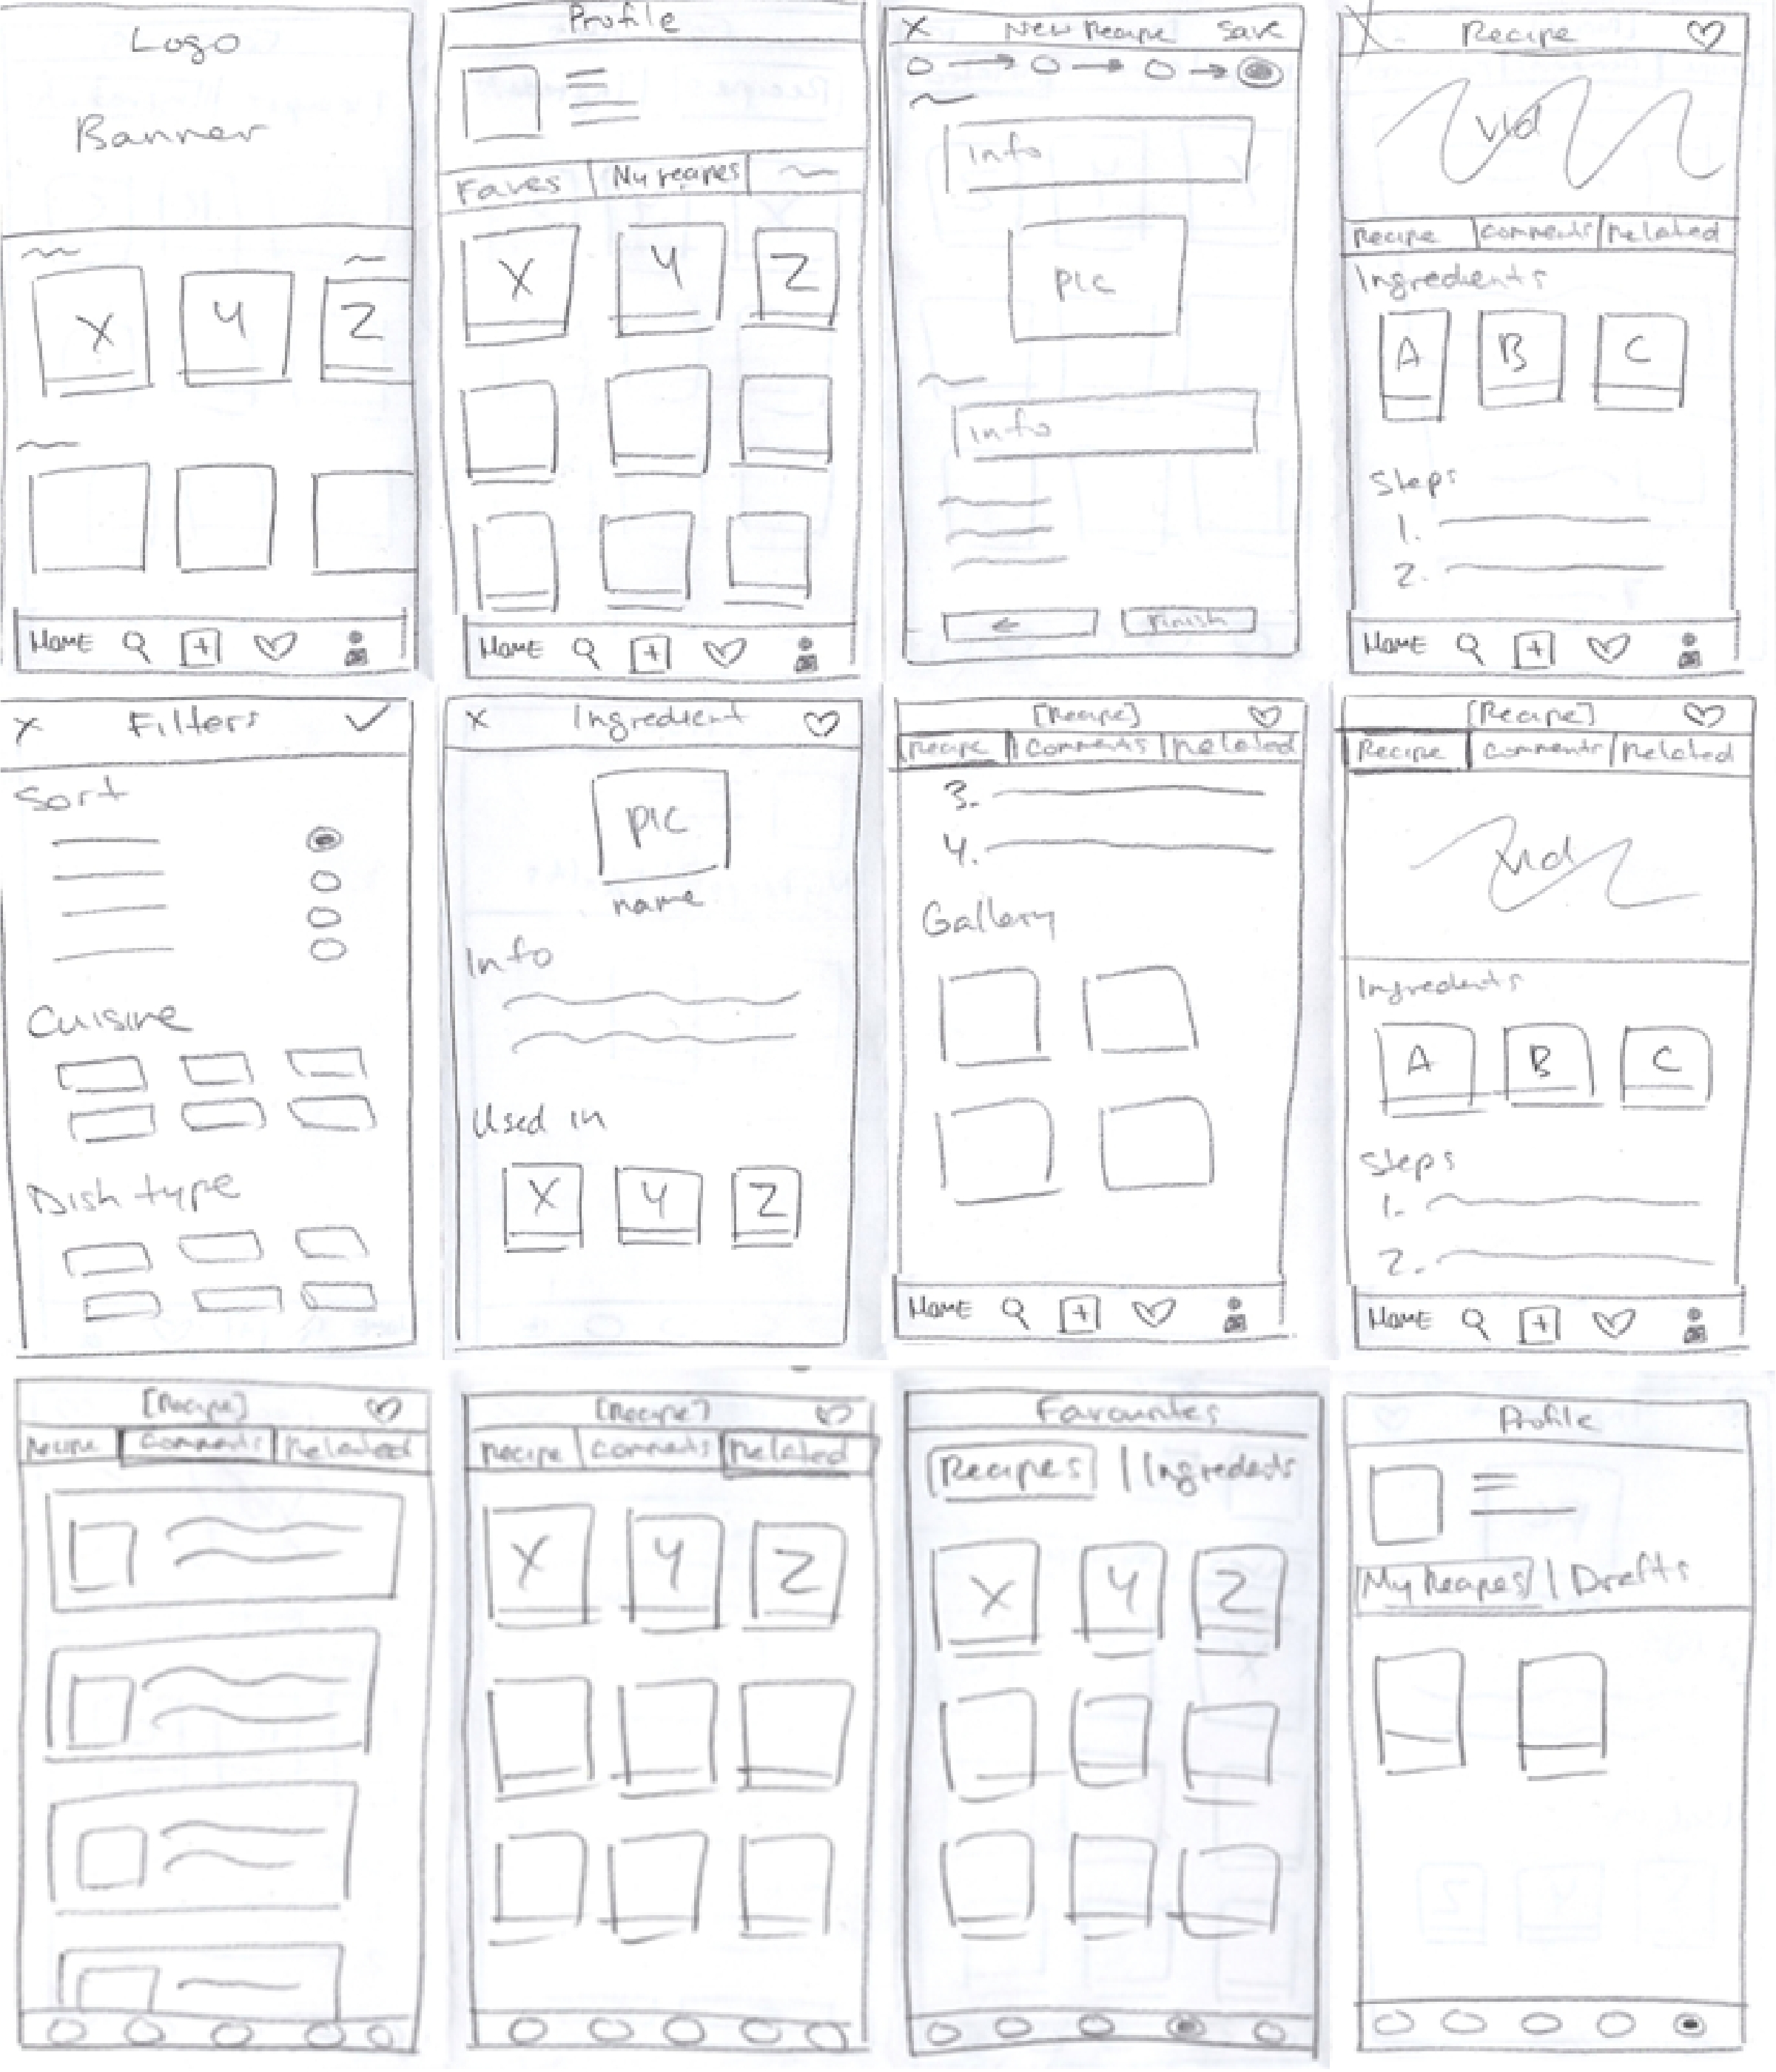 Logo
Banner
X Y Z
HOME
Profile
Faves My recipes
X Y Z
HOME
X New Recipe Save
info
pic
info
← Finish
X Recipe
vid
Recipe Comments Related
Ingredients
A B C
Steps
1.
2.
HOME
X Filters ✓
Sort
Cuisine
Dish type
X Ingredient
pic
name
Info
Used in
X Y Z
[Recipe]
Recipe Comments Related
3.
4.
Gallery
HOME
[Recipe]
Recipe Comments Related
vid
Ingredients
A B C
Steps
1.
2.
HOME
[Recipe]
Recipe Comments Related
[Recipe]
Recipe Comments Related
X Y Z
Favourites
Recipes | Ingredients
X Y Z
Profile
My Recipes | Drafts